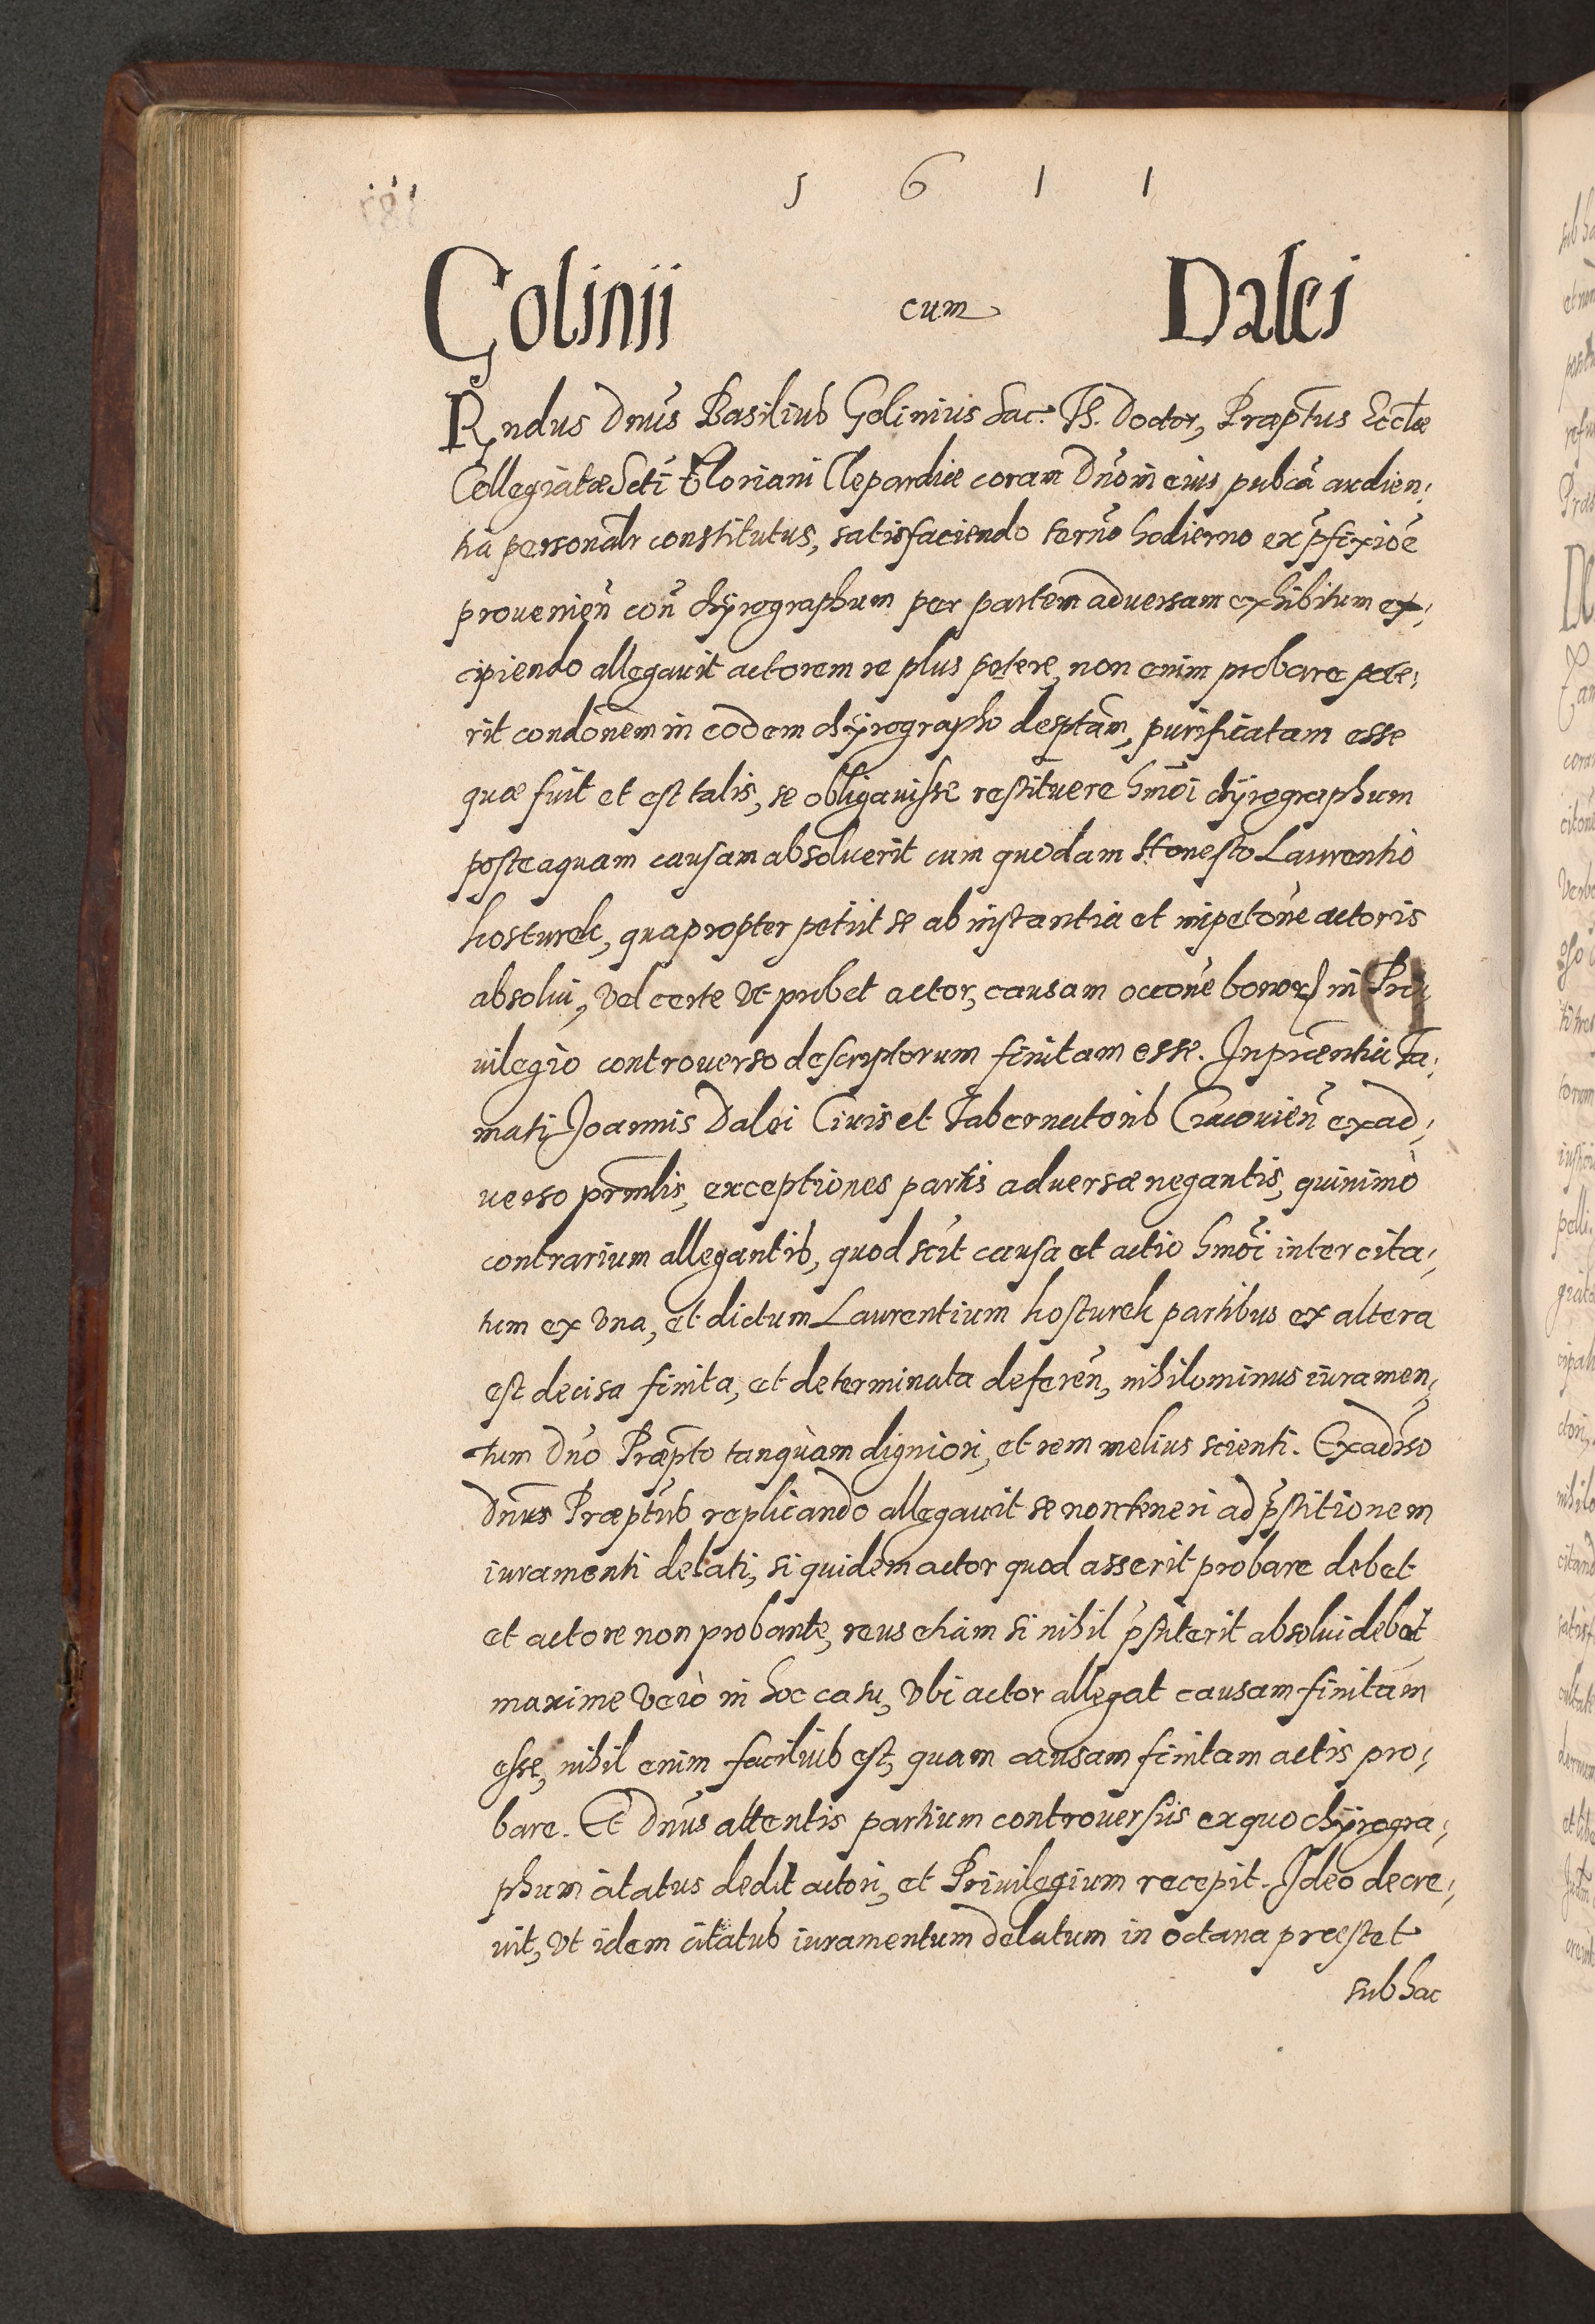 1611
Golinii cum Dalei
Rndus Dnus Basilius Golinius Sac. Th. Doctor, Præptus Eccłæ
Collegiatæ Scti Floriani Clepardiæ coram Dno in eius pubca audien:
tia personalr constitutus, satisfaciendo termo hodierno ex pfixioe
provenien con chÿrographum per partem adversam exhibitum ex:
cipiendo allegavit actorem re plus petere, non enim probare pote:
rit condonem in eodem chÿrographo descptam, purificatam esse
quæ fuit et est talis, se obligavisse restituere hmoi chÿrographum
posteaquam causam absoluerit cum quodam Honesto Laurentio
kosturek, quapropter petiit se ab instantia et impetone actoris
absolui, vel certe ut probet actor, causam occone bonor in Pri:
uilegio controuerso descriptorum finitam esse. In præntia Fa:
mati Joannis Dalei Ciuis et Tabernatoris Cracouien ex ad:
uerso prntis, exceptiones partis aduersæ negantis, quinimò
contrarium allegantis, quod scit causa et actio hmoi inter cita:
tum ex una, et dictum Laurentium kosturek partibus ex altera
est decisa finita, et determinata deferen, nihilominus iuramen:
tum Dno Præpto tanquam digniori, et rem melius scienti. Ex adrso
Dnus Præptus replicando allegauit se non teneri ad pstitionem
iuramenti delati, siquidem actor quod asserit probare debet
et actore non probante, reus etiam si nihil pstiterit absolui debet
maxime verò in hoc casu, ubi actor allegat causam finitam
esse, nihil enim facilius est, quam causam finitam actis pro:
bare. Et Dnus attentis partium controuersiis ex quo chÿrogra:
phum citatus dedit actori, et Priuilegium recepit. Ideo decre:
uit, ut idem citatus iuramentum delatum in octaua præstet
sub hac